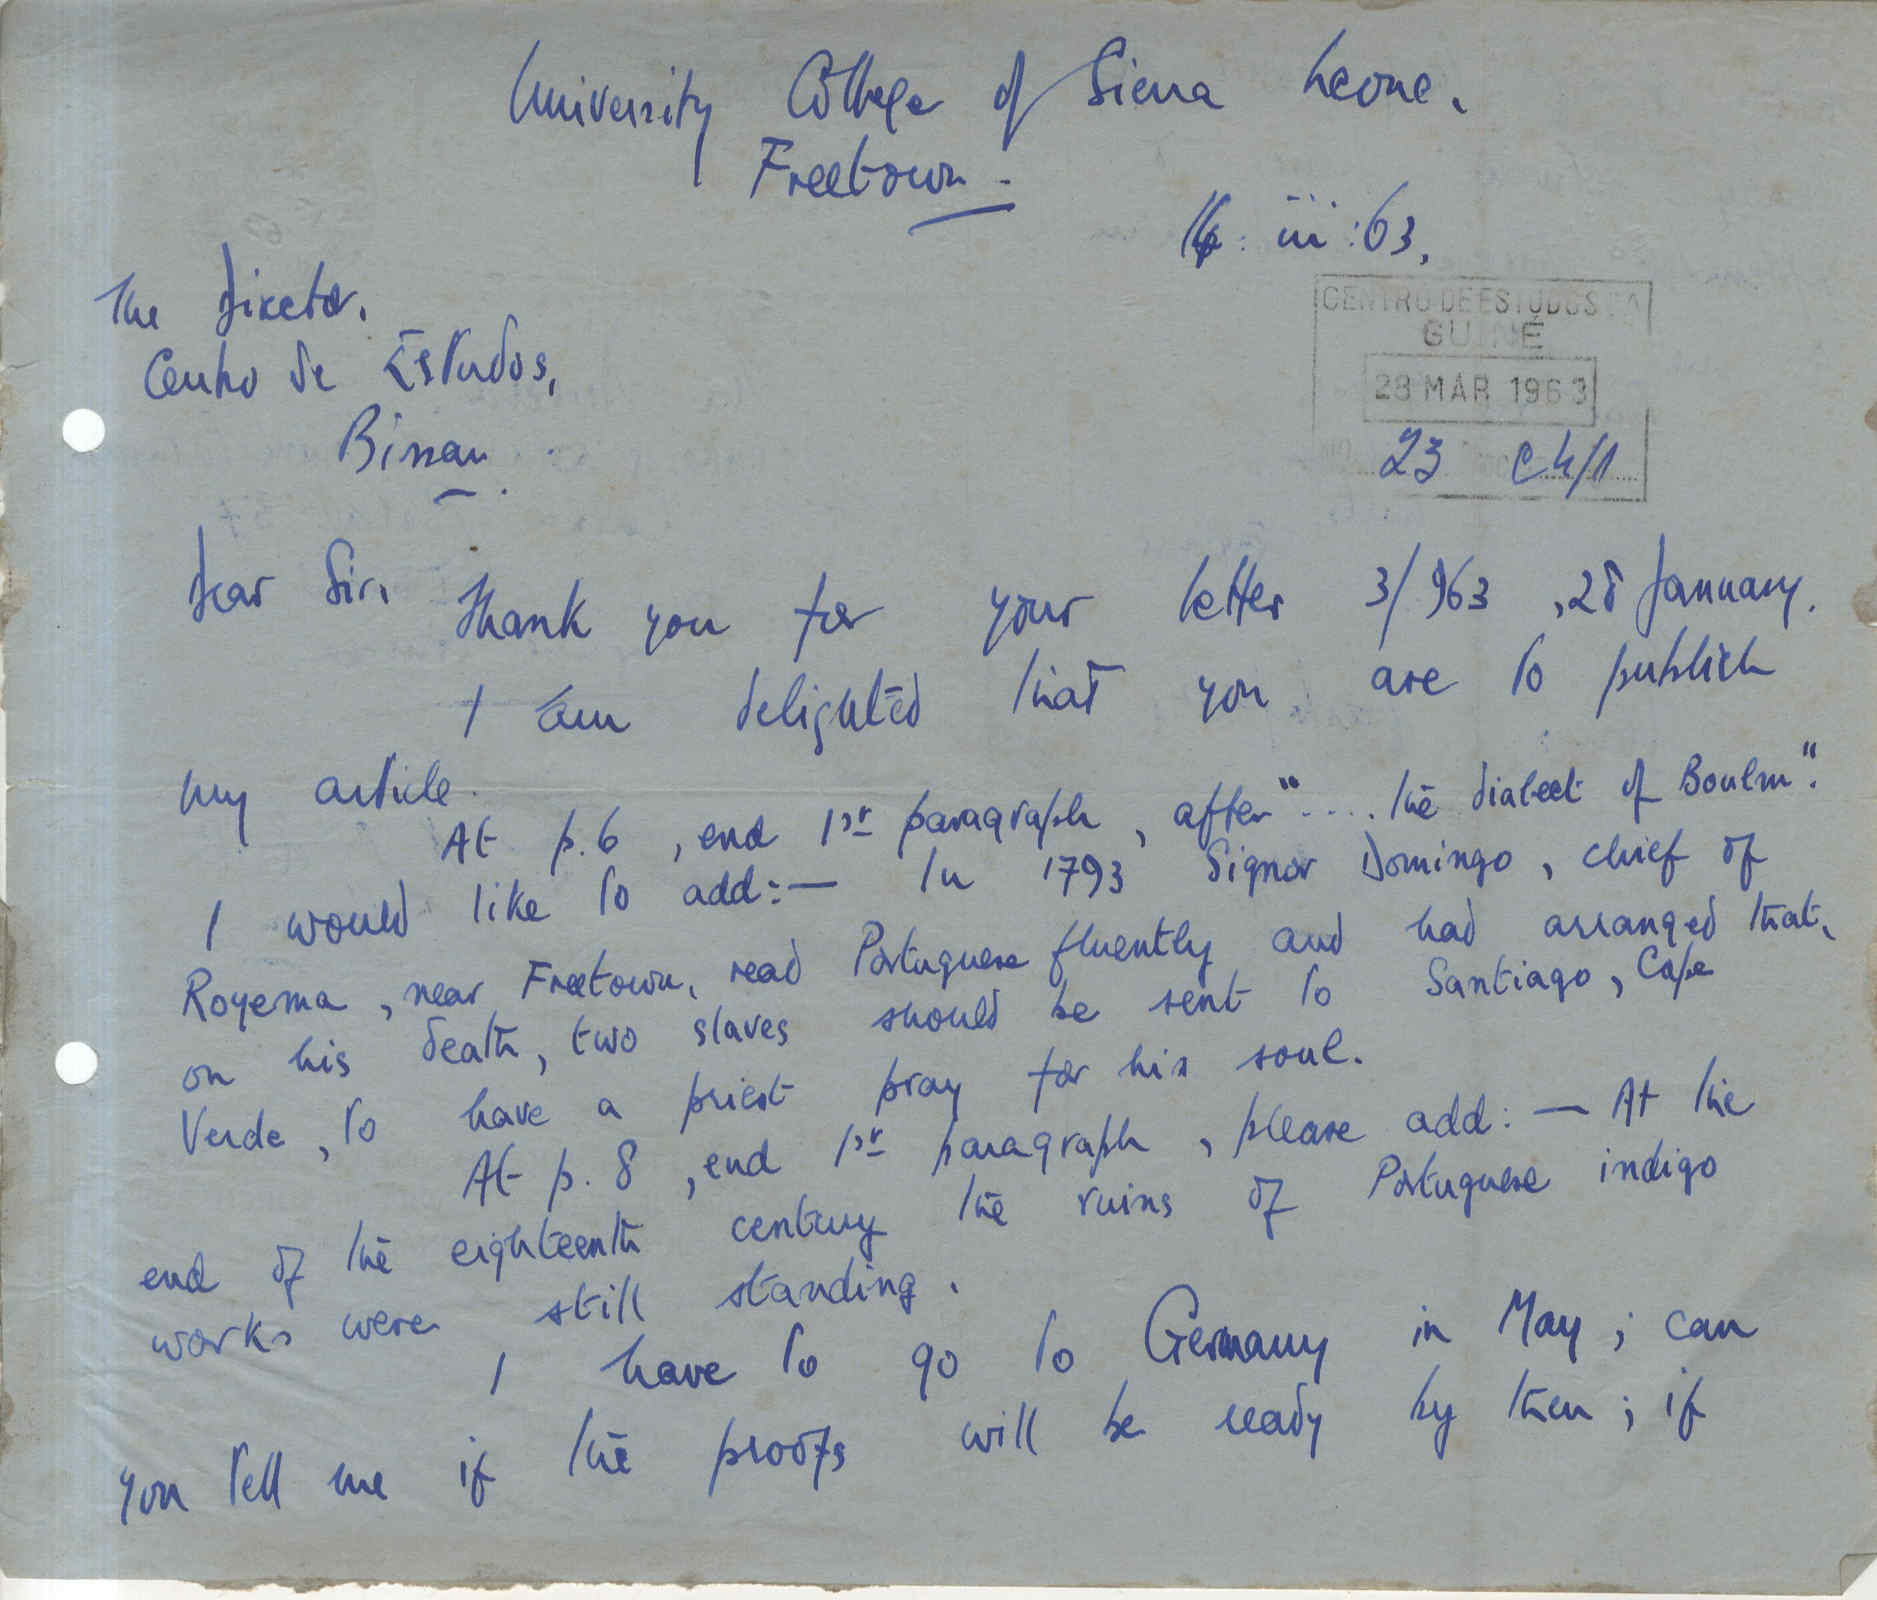 University College of Sierra Leone.
Freetown.
16: iii :63.
The Director.
CENTRO DE ESTUDOS DA
GUINÉ
Centro de Estudos,
28 MAR 1963
Bissau.
23 C4/1
Dear Sir, Thank you for your letter 3/963, 28 January.
I am delighted that you are to publish
my article.
At p. 6, end 1st paragraph, after "....the dialect of Boulm".
I would like to add:— In 1793 Signor Domingo, chief of
Royema, near Freetown, read Portuguese fluently and had arranged that,
on his death, two slaves should be sent to Santiago, Cape
Verde, to have a priest pray for his soul.
At p. 8, end 1st paragraph, please add:— At the
end of the eighteenth century the ruins of Portuguese indigo
works were still standing.
I have to go to Germany in May; can
you tell me if the proofs will be ready by then; if